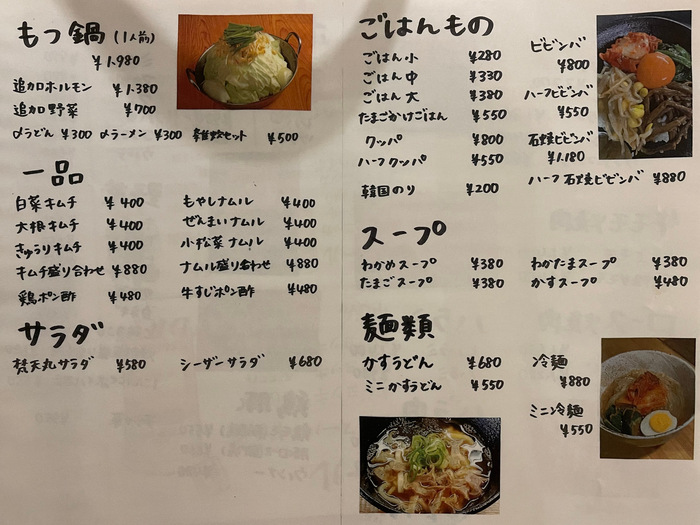 もつ鍋 (1人前)
¥1,980
追加ホルモン ¥1,380
追加野菜 ¥700
〆うどん ¥300 〆ラーメン ¥300 雑炊セット ¥500
一品
白菜キムチ ¥400 もやしナムル ¥400
大根キムチ ¥400 ぜんまいナムル ¥400
きゅうりキムチ ¥400 小松菜ナムル ¥400
キムチ盛り合わせ ¥880 ナムル盛り合わせ ¥880
鶏ポン酢 ¥480 牛すじポン酢 ¥480
サラダ
梵天丸サラダ ¥580 シーザーサラダ ¥680
ごはんもの
ごはん小 ¥280
ごはん中 ¥330
ごはん大 ¥380
たまごかけごはん ¥550
クッパ ¥800
ハーフクッパ ¥550
韓国のり ¥200
ビビンバ
¥800
ハーフビビンバ
¥550
石焼ビビンバ
¥1,180
ハーフ石焼ビビンバ ¥880
スープ
わかめスープ ¥380 わかたまスープ ¥380
たまごスープ ¥380 かすスープ ¥480
麺類
かすうどん ¥680
ミニかすうどん ¥550
冷麺
¥880
ミニ冷麺
¥550